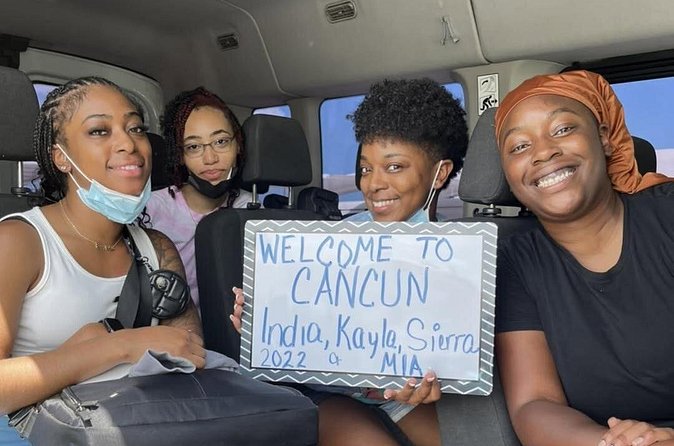 WELCOME TO
CANCUN
India, Kayla, Sierra
2022 & MIA